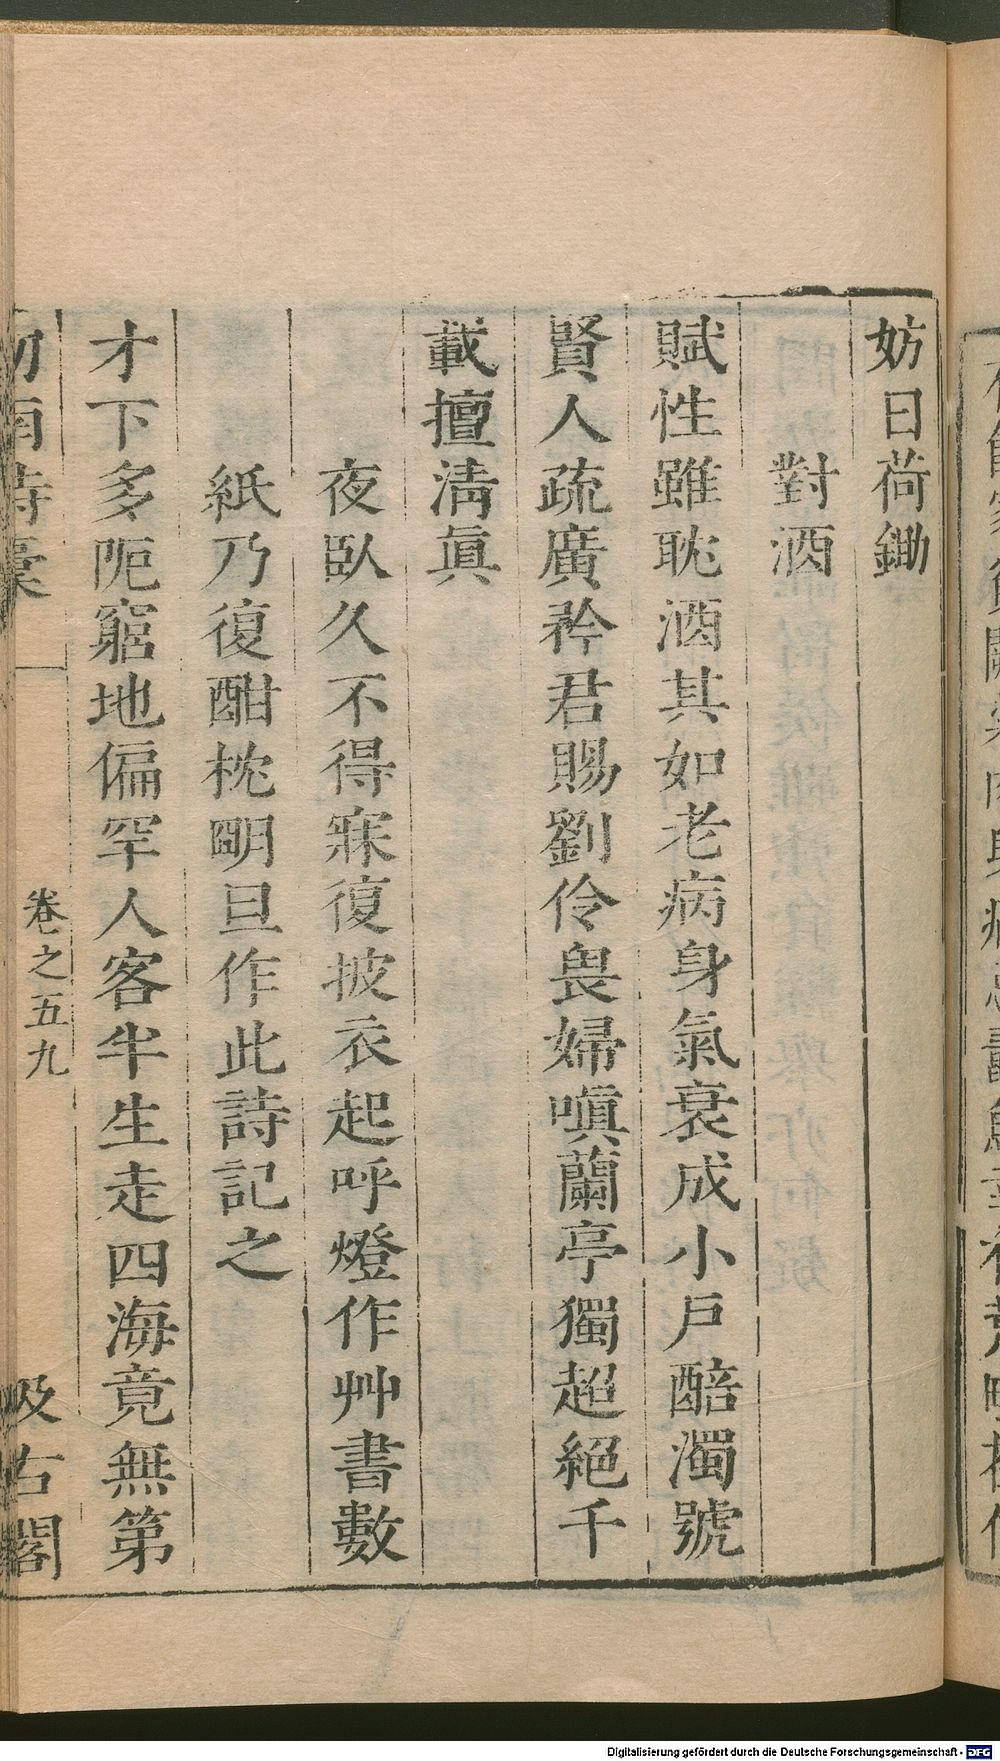 妨日荷鋤
對酒
賦性雖耽酒其如老病身氣衰成小戸醅濁號
賢人疏廣矜君賜劉伶畏婦嗔蘭亭獨超絕千
載擅淸眞
夜臥久不得寐復披衣起呼燈作艸書數
紙乃復酣枕明旦作此詩記之
才下多阨窮地偏罕人客半生走四海竟無第
劒南詩稾
卷之五九
汲古閣
Digitalisierung gefördert durch die Deutsche Forschungsgemeinschaft - DFG